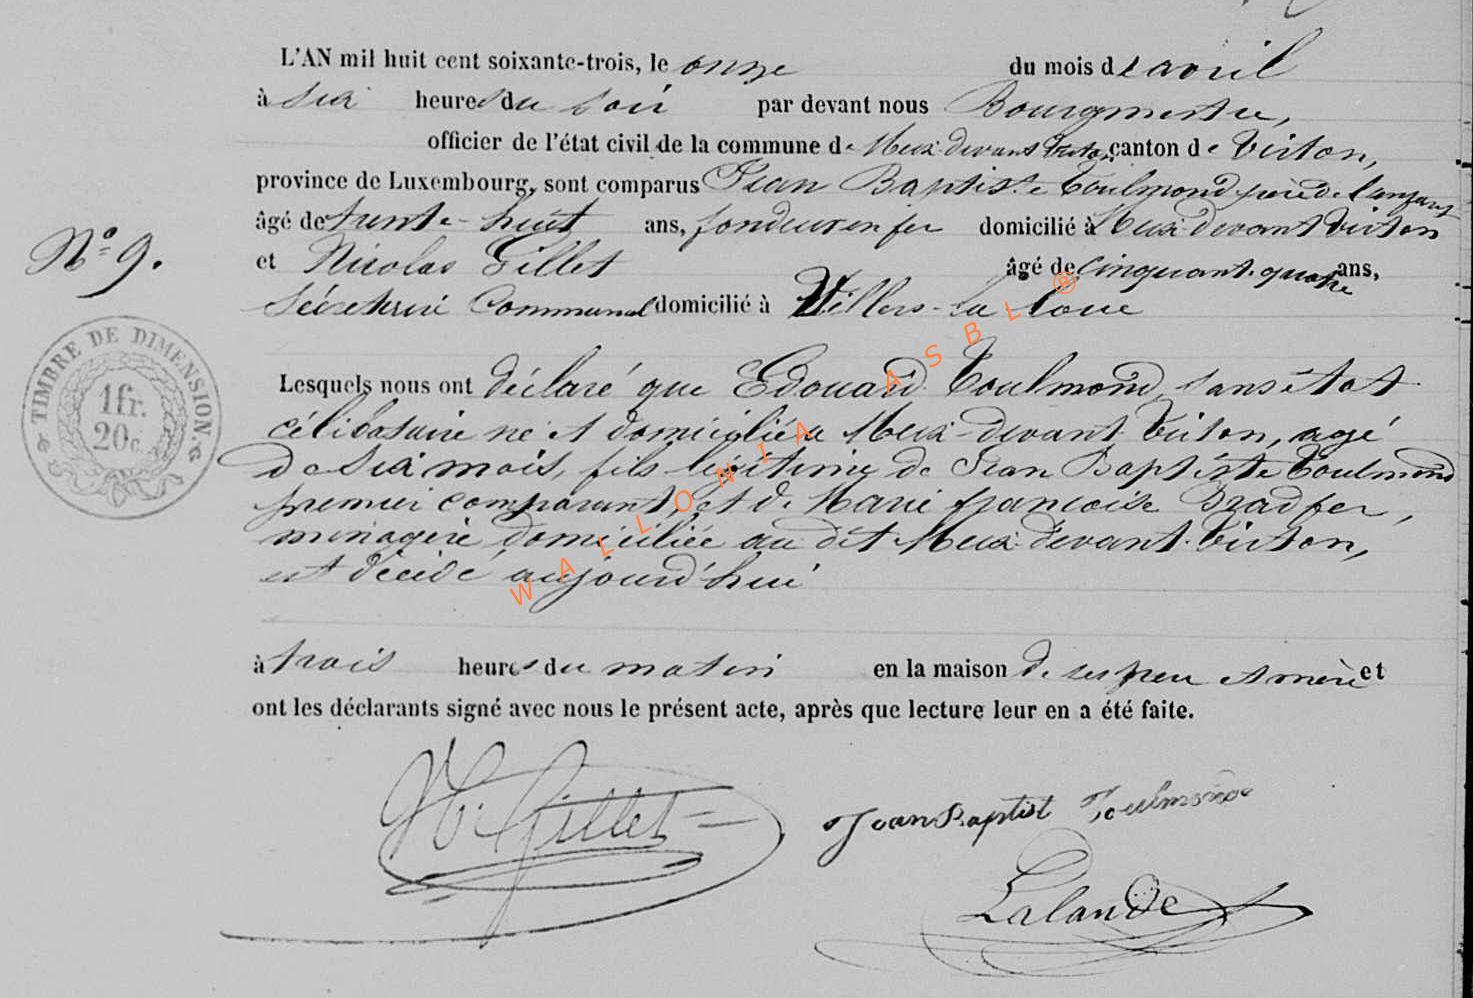 L'AN mil huit cent soixante-trois, le onze du mois d'avril
à six heures du soir par devant nous Bourgmestre,
officier de l'état civil de la commune de Meix-devant-Virton, canton de Virton,
province de Luxembourg, sont comparus Jean Baptiste Toulmond père de l'enfant
âgé de trente-huit ans, fondeur en fer domicilié à Meix-devant-Virton
et Nicolas Gillet âgé de cinquante-quatre ans,
Secrétaire Communal domicilié à Villers-la-Loue
N° 9.
TIMBRE DE DIMENSION.
1fr.
20c.
Lesquels nous ont déclaré que Edouard Toulmond, sans état
célibataire né et domicilié à Meix-devant-Virton, agé
de six mois, fils légitime de Jean Baptiste Toulmond
premier comparant, et de Marie françoise Bradfer,
ménagère domiciliée au dit Meix-devant-Virton,
est décédé aujourd'hui
à trois heures du matin en la maison de ses père et mère et
ont les déclarants signé avec nous le présent acte, après que lecture leur en a été faite.
Gillet
Jean Baptist Toulmonde
Lalande
WALLONIA ASBL ®